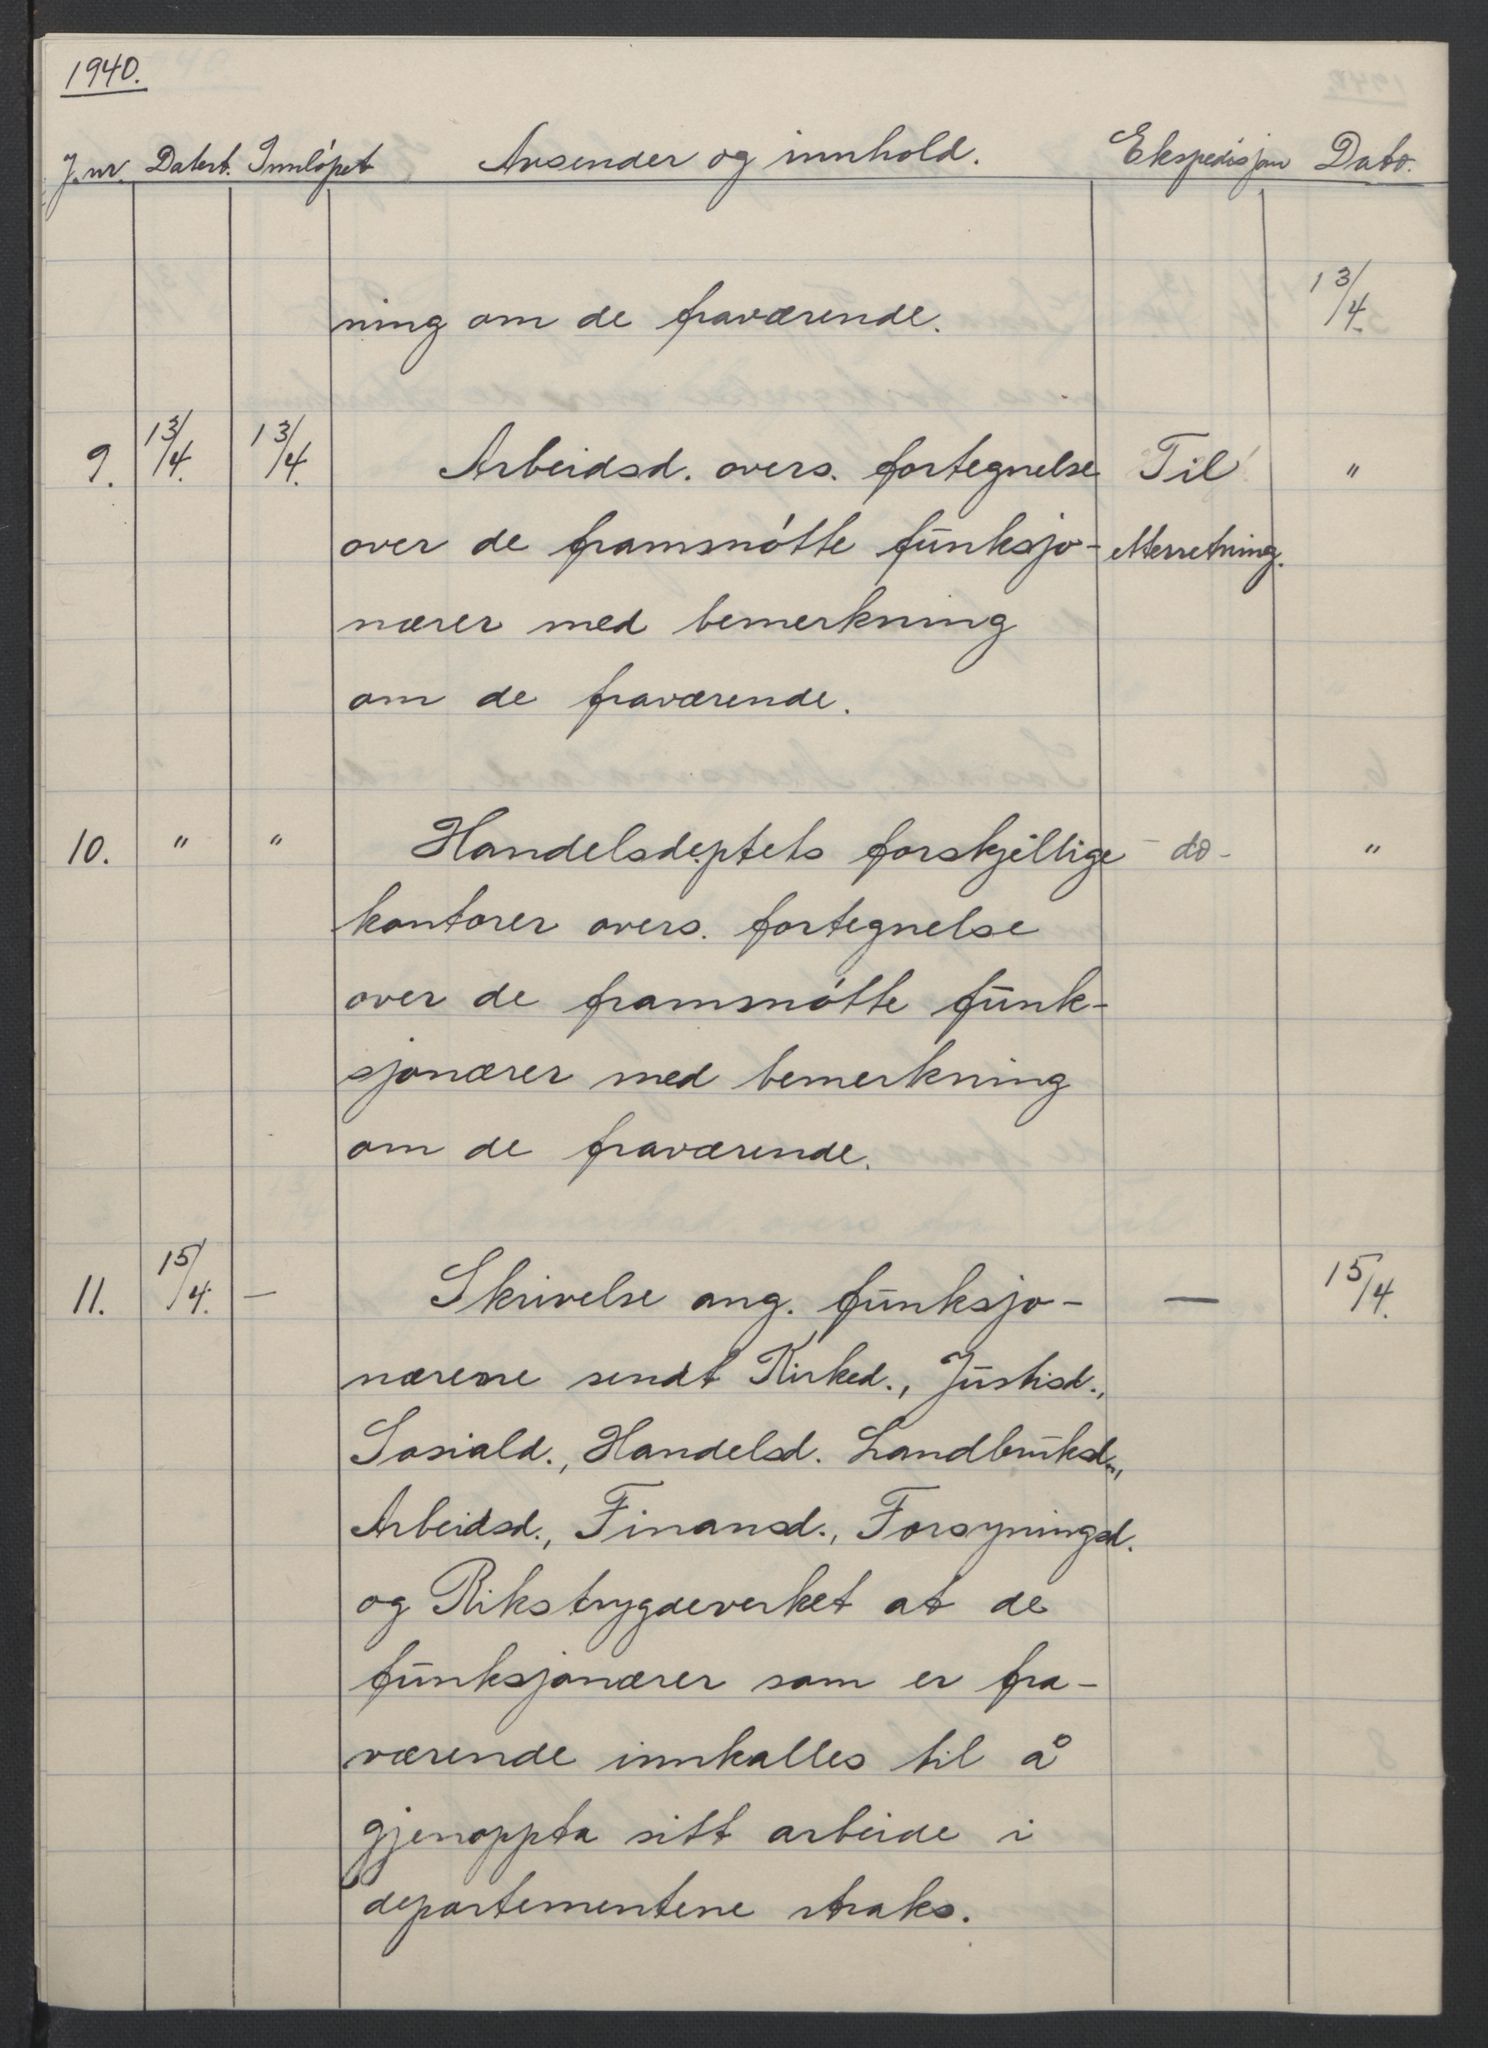 1940.
J.nr. Datert. Innløpet Avsender og innhold. Ekspedisjon Dato.
ning om de fraværende. 13/4.
9. 13/4. 13/4. Arbeidsd. overs. fortegnelse Til "
over de framsmøtte funksjo- etterretning.
nærer med bemerkning
om de fraværende.
10. " " Handelsdeptets forskjellige - do - "
kontorer overs. fortegnelse
over de framsmøtte funk-
sjonærer med bemerkning
om de fraværende.
11. 15/4. — Skrivelse ang. funksjo- — 15/4.
nærene sendt Kirked., Justisd.,
Sosiald., Handelsd. Landbruksd.,
Arbeidsd., Finansd., Forsyningsd.
og Rikstrygdeverket at de
funksjonærer som er fra-
værende innkalles til å
gjenoppta sitt arbeide i
departementene straks.